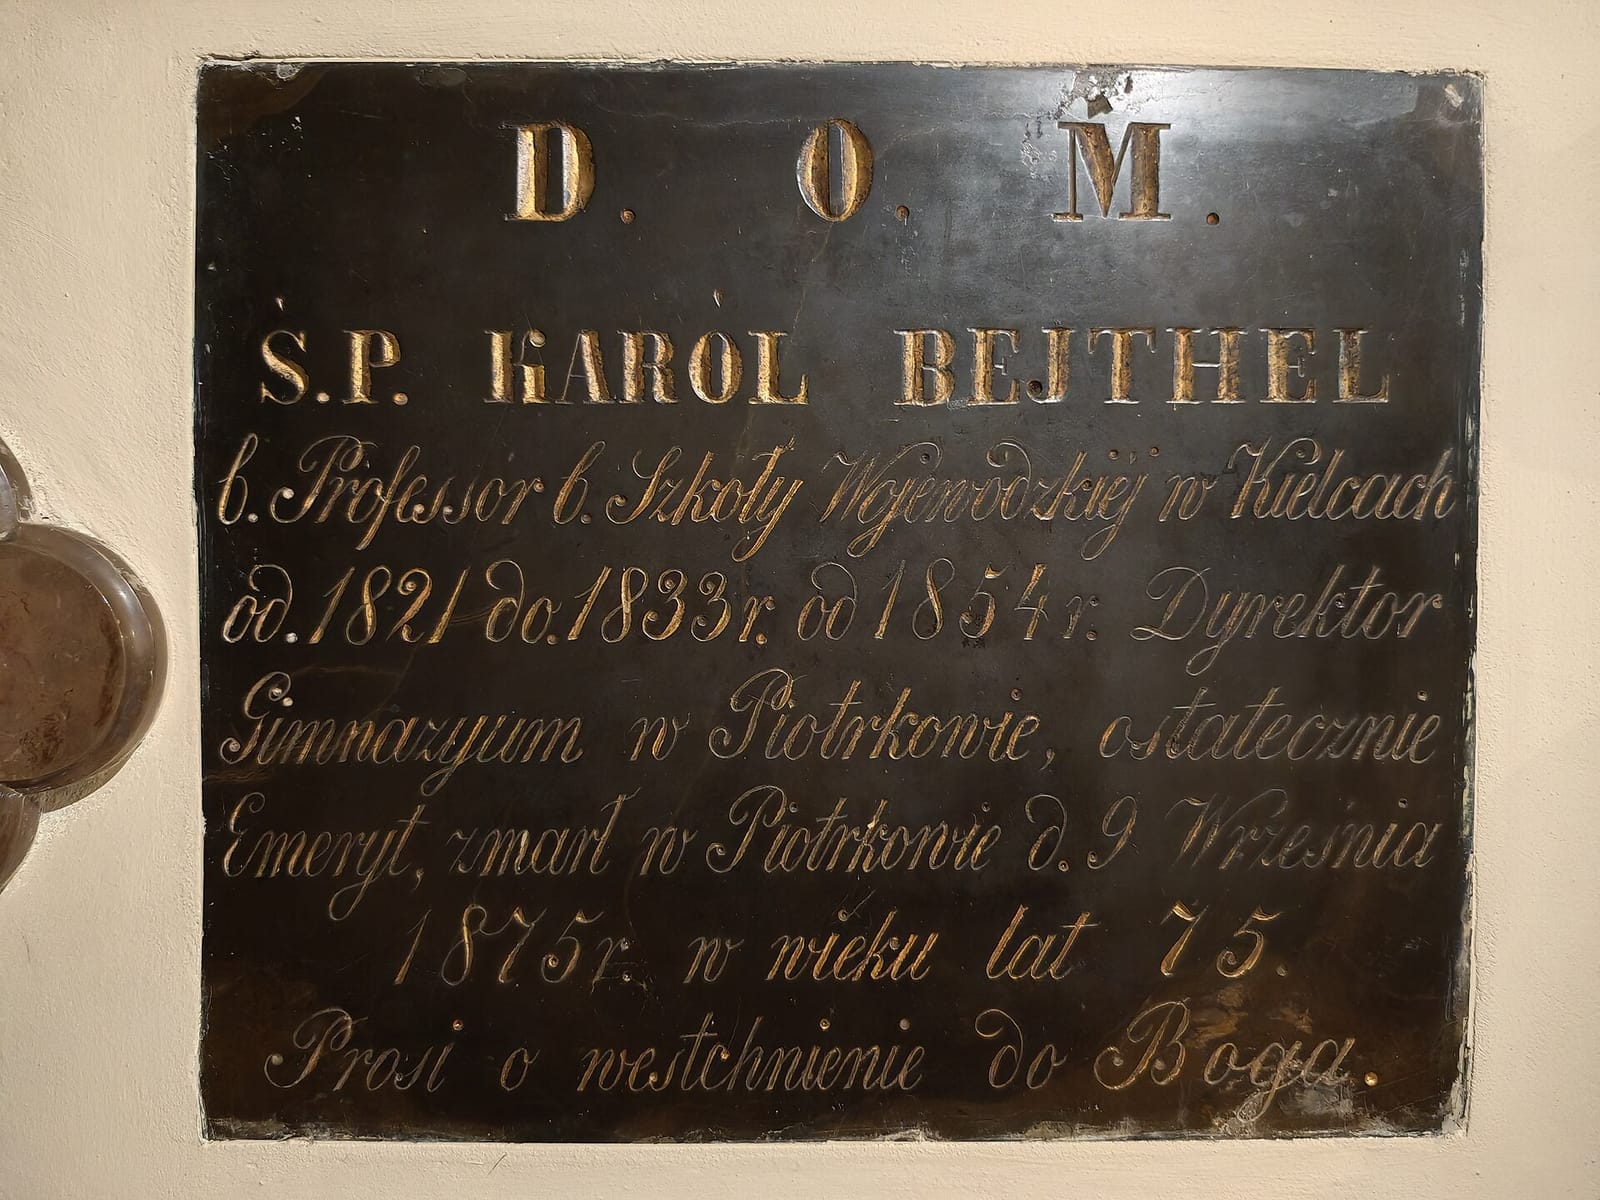 D. O. M.
Ś.P. KAROL BEJTHEL
b. Professor b. Szkoły Wojewódzkiéj w Kielcach
od. 1821 do. 1833 r. od 1854 r. Dyrektor
Gimnazyum w Piotrkowie, ostatecznie
Emeryt, zmarł w Piotrkowie d. 9 Września
1875 r. w wieku lat 75.
Prosi o westchnienie do Boga.